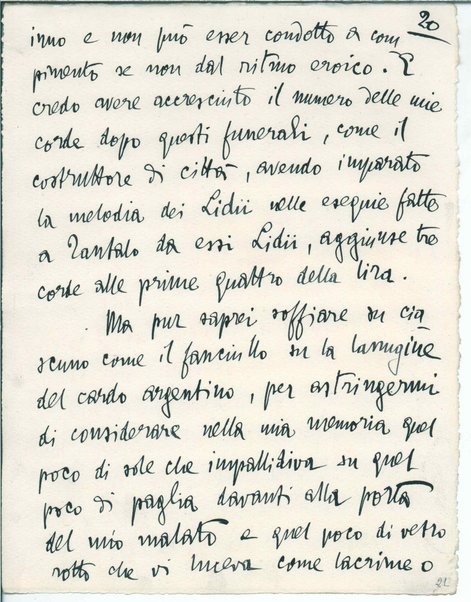 20
inno e non può esser condotto a com
pimento se non dal ritmo eroico. E
credo avere accresciuto il numero delle mie
corde dopo questi funerali, come il
costruttore di città, avendo imparato
la melodia dei Lidii nelle esequie fatte
a Tantalo da essi Lidii, aggiunse tre
corde alle prime quattro della lira.
Ma pur saprei soffiare su cia
scuno come il fanciullo su la lanugine
del cardo argentino, per astringermi
di considerare nella mia memoria quel
poco di sole che impallidiva su quel
poco di paglia davanti alla porta
del mio malato e quel poco di vetro
rotto che vi luceva come lacrime o
21